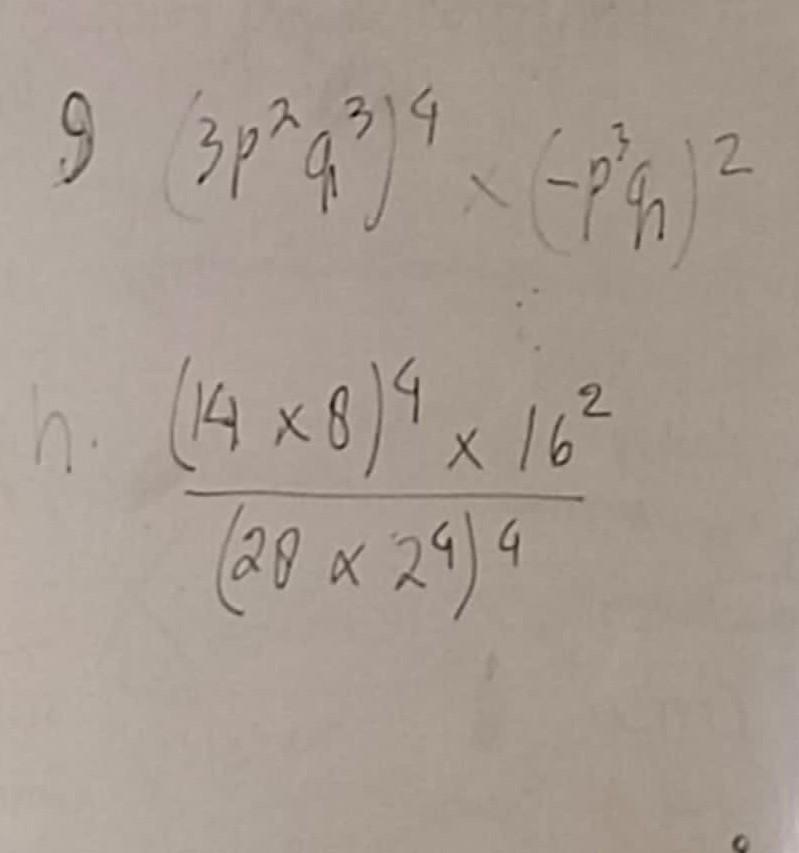 g (3p²q³)⁴ × (-p³q)²
h. (14 × 8)⁴ × 16²
(28 × 2⁴)⁴